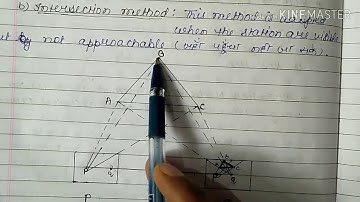 KINEMASTER
b) Intersection method: This method is
when the station are visible
but not approachable (जहाँ पहुँचा नहीं जा सके).
B
A
C
P
Q